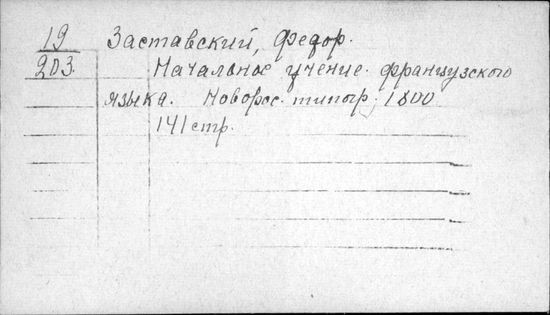 19 Заставский, Федор.
203. Начальное учение французского
языка. Новорос. типогр. 1800
141 стр.